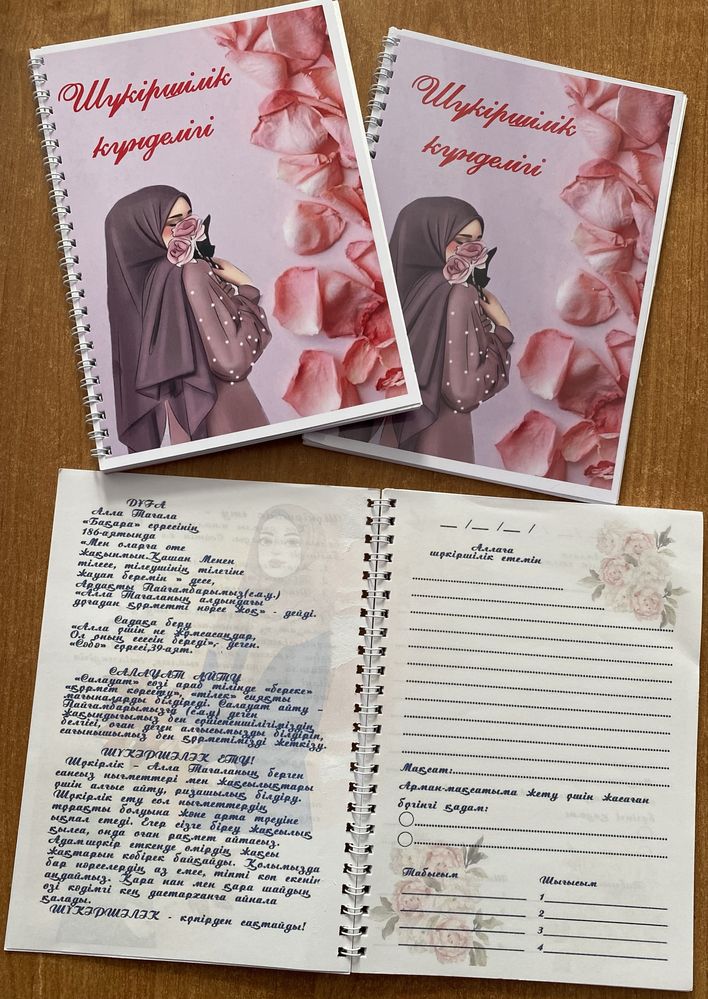 Шүкіршілік
күнделігі
Шүкіршілік
күнделігі
ДҰҒА
Алла Тағала
«Бақара» сүресінің
186-аятында
«Мен оларға өте
жақынмын.Қашан Менен
тілесе, тілеушінің тілегіне
жауап беремін » десе,
Ардақты Пайғамбарымыз(с.а.у.)
«Алла Тағаланың алдындағы
дұғадан құрметті нәрсе жоқ» - дейді.
Садақа беру
«Алла үшін не жұмсасаңдар,
Ол оның есесін береді»,- деген.
«Сәбә» сүресі,39-аят.
САЛАУАТ АЙТУ
«Салауат» сөзі араб тілінде «береке»
«құрмет көрсету», «тілек» сияқты
мағыналарды білдіреді. Салауат айту -
Пайғамбарымызға (с.а.у) деген
жақындығымыз бен сүйіспеншілігіміздің
белгісі, оған деген алғысымызды білдіріп,
сағынышымыз бен құрметімізді жеткізу.
ШҮКІРШІЛІК ЕТУ!
Шүкірлік - Алла Тағаланың берген
сансыз нығметтері мен жақсылықтары
үшін алғыс айту, ризашылық білдіру.
Шүкірлік ету сол нығметтердің
тұрақты болуына және арта түсуіне
ықпал етеді. Егер сізге біреу жақсылық
қылса, онда оған рақмет айтасыз.
Адамшүкір еткенде өмірдің жақсы
жақтарын көбірек байқайды. Қолымызда
бар нәрселердің аз емес, тіпті көп екенін
аңдаймыз. Қара нан мен қара шайдың
өзі кәдімгі кең дастарханға айнала
қалады.
ШҮКІРШІЛІК - күпірден сақтайды!
__ /__ /__ /
Аллаға
шүкіршілік етемін
Мақсат:
Арман-мақсатыма жету үшін жасаған
бүгінгі қадам:
Табысым
Шығысым
1
2
3
4